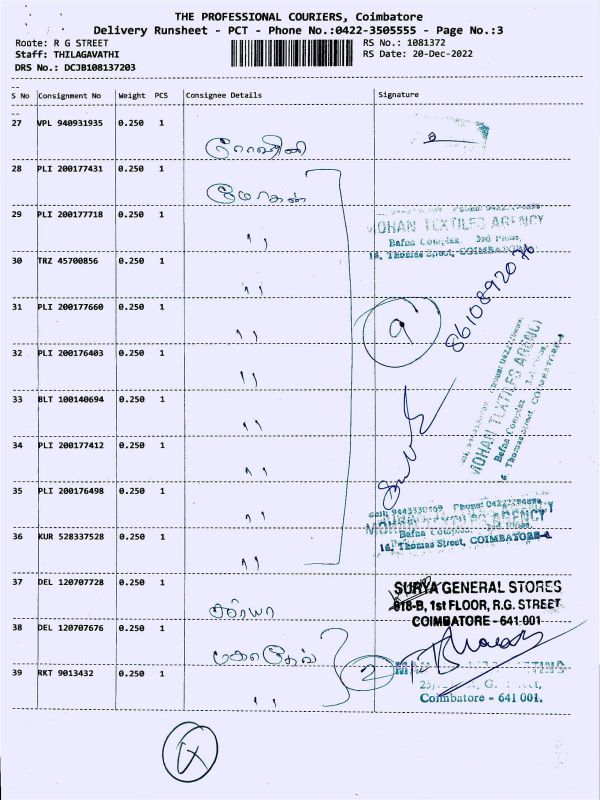 THE PROFESSIONAL COURIERS, Coimbatore
Delivery Runsheet - PCT - Phone No.:0422-3505555 - Page No.:3
Route: R G STREET
RS No.: 1081372
Staff: THILAGAVATHI
RS Date: 20-Dec-2022
DRS No.: DCJB108137203
S No Consignment No Weight PCS Consignee Details Signature
27 VPL 940931935 0.250 1
28 PLI 200177431 0.250 1 மோகன்
29 PLI 200177718 0.250 1 ''
MOHAN TEXTILES AGENCY
Bafna Complex 3rd Floor,
16, Thomas Street, COIMBATORE
30 TRZ 45700856 0.250 1 ''
31 PLI 200177660 0.250 1 ''
9
8610892076
32 PLI 200176403 0.250 1 ''
MOHAN TEXTILES AGENCY
Bafna Complex
16, Thomas Street, COIMBATORE-1
33 BLT 100140694 0.250 1 ''
34 PLI 200177412 0.250 1 ''
35 PLI 200176498 0.250 1 ''
MOHAN TEXTILES AGENCY
Bafna Complex 3rd Floor,
16, Thomas Street, COIMBATORE-1
36 KUR 528337528 0.250 1 ''
37 DEL 120707728 0.250 1 சூர்யா
SURYA GENERAL STORES
818-B, 1st FLOOR, R.G. STREET
COIMBATORE - 641 001
38 DEL 120707676 0.250 1
2
39 RKT 9013432 0.250 1 ''
Coimbatore - 641 001.